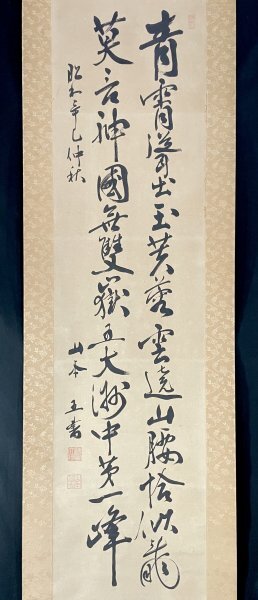 青霄湧出玉芙蓉雲遶山腰恰似龍
莫言神國無雙嶽五大洲中第一峰
昭和辛巳仲秋
山本 王書